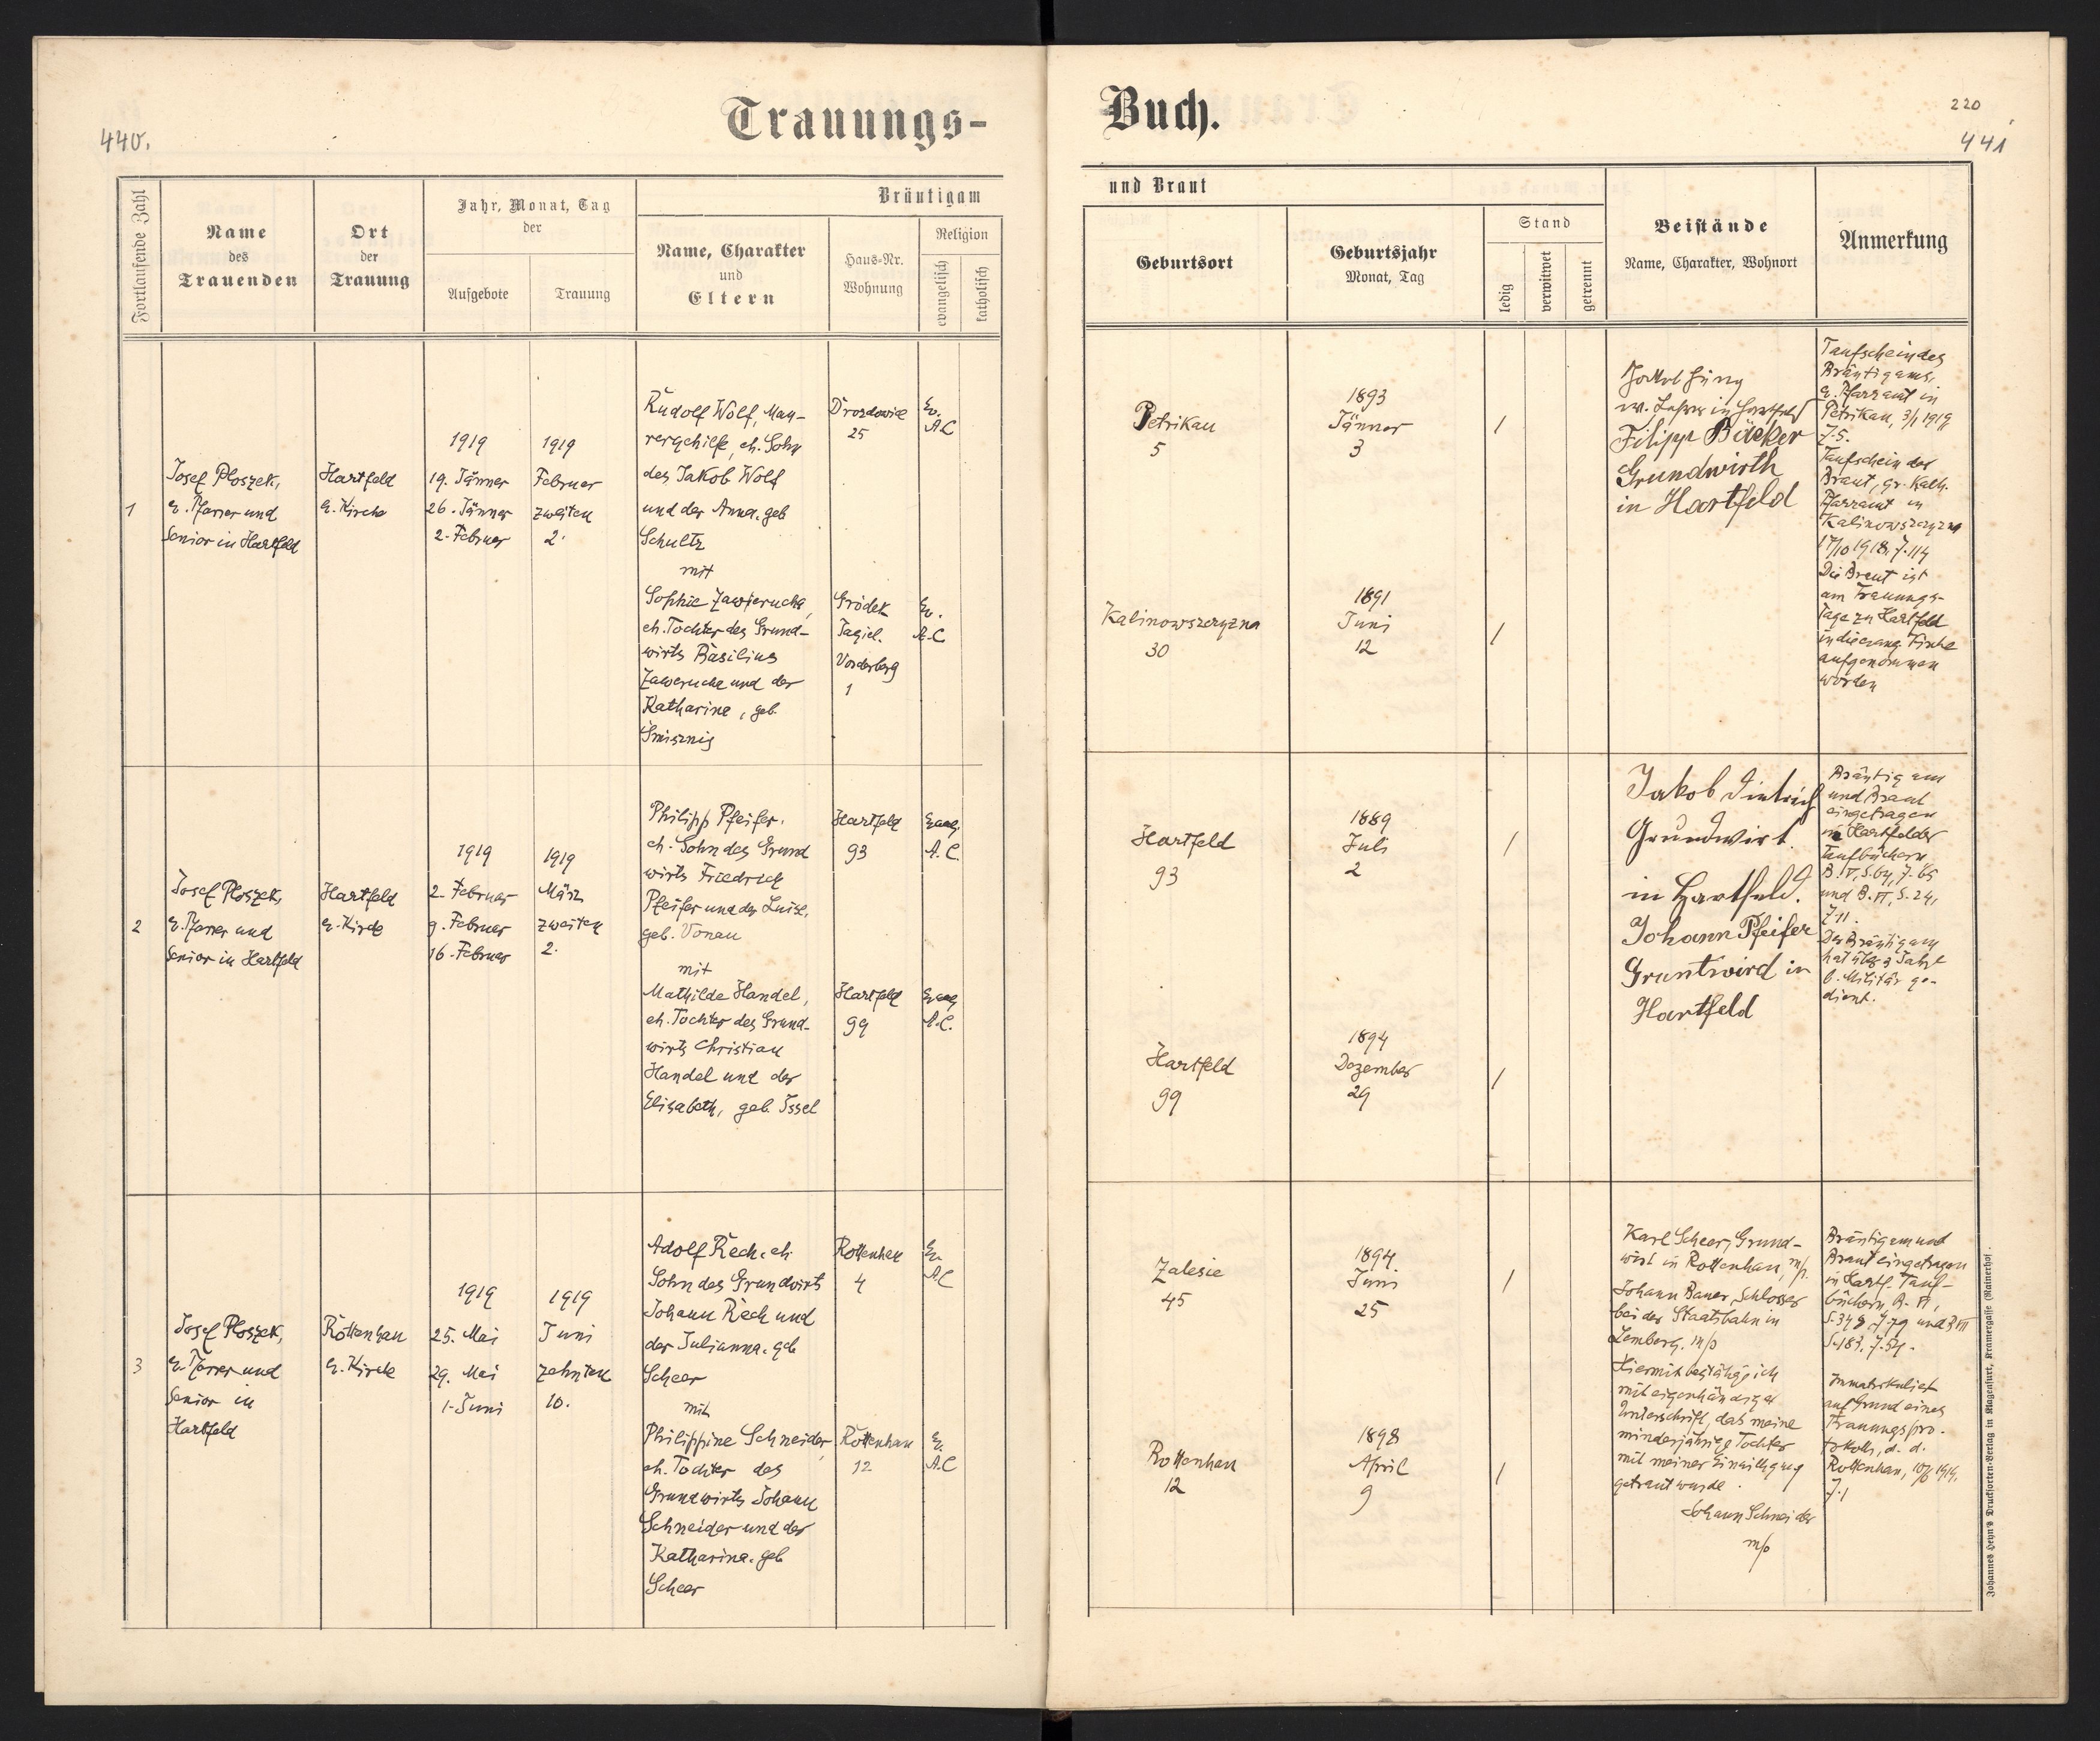 440.
Trauungs-
Fortlaufende Zahl
Name
des
Trauenden
Ort
der
Trauung
Jahr, Monat, Tag
der
Aufgebote
Trauung
Bräutigam
Name, Charakter
und
Eltern
Haus-Nr.
Wohnung
Religion
evangelisch
katholisch
1
Josef Ploszek,
e. Pfarrer und
Senior in Hartfeld
Hartfeld
e. Kirche
1919
19. Jänner
26. Jänner
2. Februar
1919
Februar
zweiten
2.
Rudolf Wolf, Mau-
rergehilfe, eh. Sohn
des Jakob Wolf
und der Anna, geb
Schultz
mit
Sophie Zawierucha,
eh. Tochter des Grund-
wirts Basilius
Zawerucha und der
Katharina, geb.
Drozdowice
25
Gródek
Jagiel.
Vorderberg
1
Ev.
A.C
Ev.
A.C
2
Josef Ploszek,
e. Pfarrer und
Senior in Hartfeld
Hartfeld
e. Kirche
1919
2. Februar
9. Februar
16. Februar
1919
März
zweiten
2.
Philipp Pfeifer.
eh. Sohn des Grund
wirts Friedrich
Pfeifer und der Luise,
geb. Vonau
mit
Mathilde Handel,
eh. Tochter des Grund-
wirts Christian
Handel und der
Elisabeth, geb. Issel
Hartfeld
93
Hartfeld
99
Evang.
A.C.
Evang
A.C.
3
Josef Ploszek,
e. Pfarrer und
Senior in
Hartfeld
Rottenhan
e. Kirche
1919
25. Mai
29. Mai
1. Juni
1919
Juni
zehnten
10.
Adolf Rech, eh.
Sohn des Grundwirts
Johann Rech und
der Julianna, geb
Scheer
mit
Philippine Schneider,
eh. Tochter des
Grundwirts Johann
Schneider und der
Katharina, geb
Scheer
Rottenhan
4
Rottenhan
12
Ev.
A.C
Ev.
A.C
Buch.
220
441
und Braut
Geburtsort
Geburtsjahr
Monat, Tag
Stand
ledig
verwitwet
getrennt
Beistände
Name, Charakter, Wohnort
Anmerkung
Petrikau
5
1893
Jänner
3
/
Kalinowszczyzna
30
1891
Juni
12
/
Jakob Jung
ev. Lehrer in Hartfeld
Filipp Bäcker
Grundwirth
in Hartfeld
Taufschein des
Bräutigams,
e. Pfarramt in
Petrikau, 3/1 1919
Z. 5.
Taufschein der
Braut, gr. kath.
Pfarramt in
Kalinowszczyzna
17/10 1918, Z. 114
Die Braut ist
am Trauungs-
tage zu Hartfeld
in die evang. Kirche
aufgenommen
worden
Hartfeld
93
1889
Juli
2
/
Hartfeld
99
1894
Dezember
29
/
Jakob Dietrich
Grundwirt
in Hartfeld.
Johann Pfeifer
Gruntwird in
Hartfeld
Bräutigam
und Braut
eingetragen
in Hartfelder
Taufbüchern,
S. 64, Z. 65
und B. VI, S. 241
Z 11.
Der Bräutigam
hat über 3 Jahre
b. Militär ge-
dient.
Zalesie
45
1894
Juni
25
/
Rottenhan
12
1898
April
9
/
Karl Scheer, Grund-
wirt in Rottenhan, m/p.
Johann Bauer, Schlosser
bei der Staatsbahn in
Lemberg. m/p
Hiermit bestätige ich
mit eigenhändiger
Unterschrift, daß meine
minderjährige Tochter
mit meiner Einwilligung
getraut wurde.
Johann Schneider
m/p
Bräutigam und
Braut eingetragen
in Hartf. Tauf-
büchern, B. VI,
S. 348, Z. 79 und B VII
S. 183, Z. 54.
Immatrikuliert
auf Grund eines
Trauungspro-
tokolls, d. d.
Rottenhan, 10/6 1919,
Z. 1
Johannes Heyn's Drucksorten-Verlag in Klagenfurt, Kramergasse (Rainerhof).